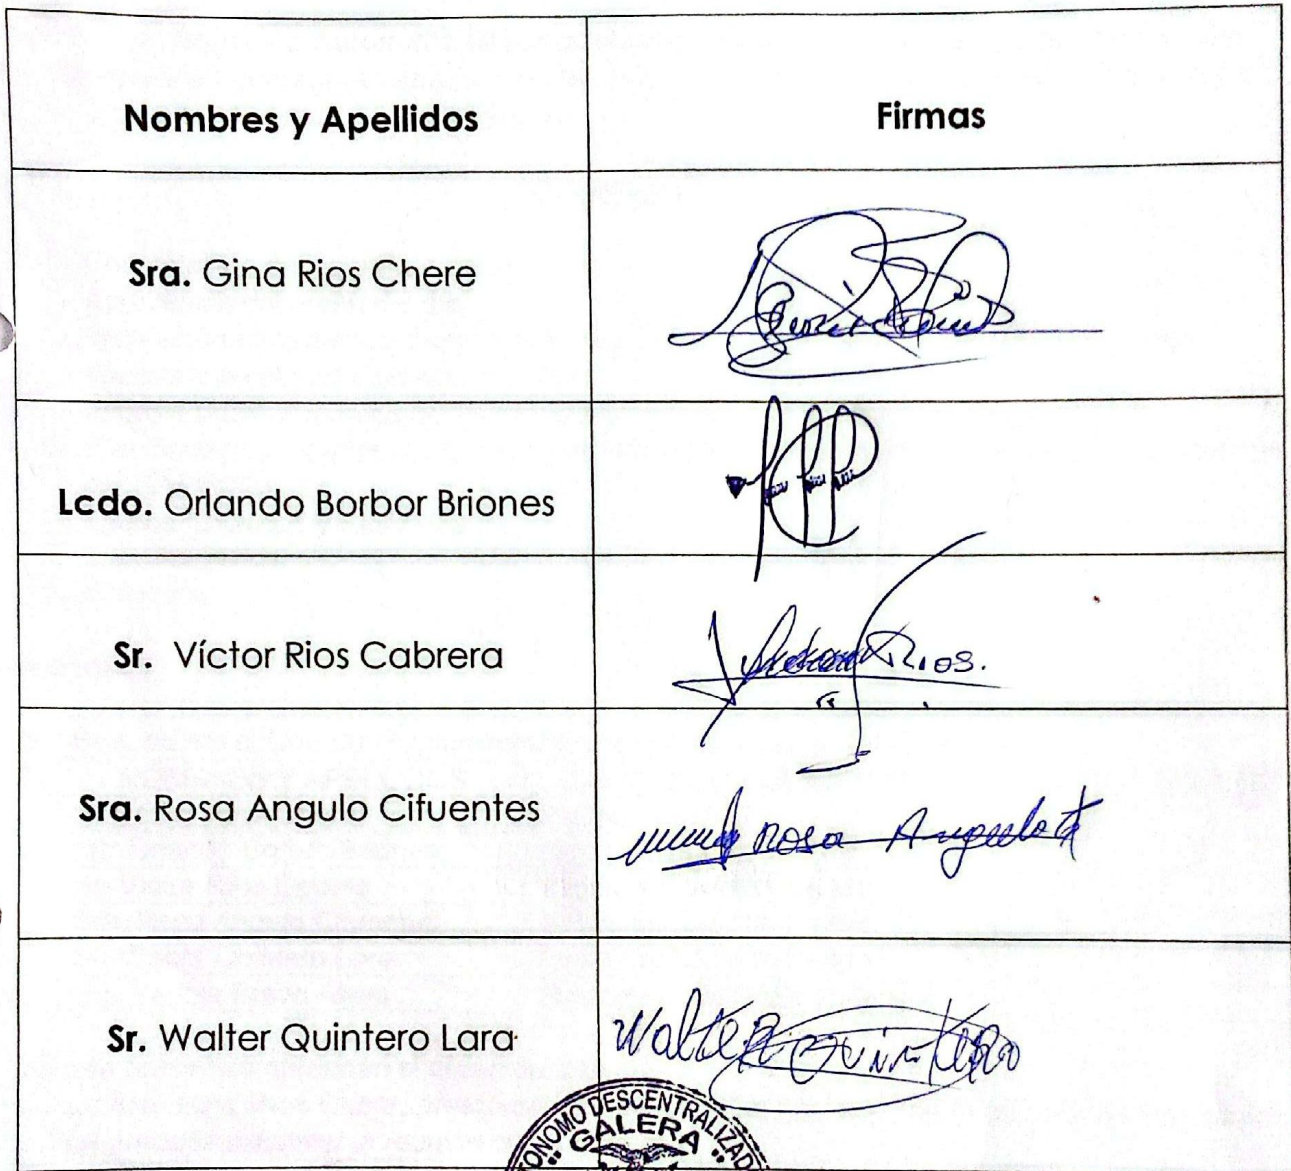 Nombres y Apellidos
Firmas
Sra. Gina Rios Chere
Lcdo. Orlando Borbor Briones
Sr. Víctor Rios Cabrera
Rios.
Sra. Rosa Angulo Cifuentes
Rosa Angulo
Sr. Walter Quintero Lara
Walter Quintero
ONOMO DESCENTRALIZADO
"GALERA"